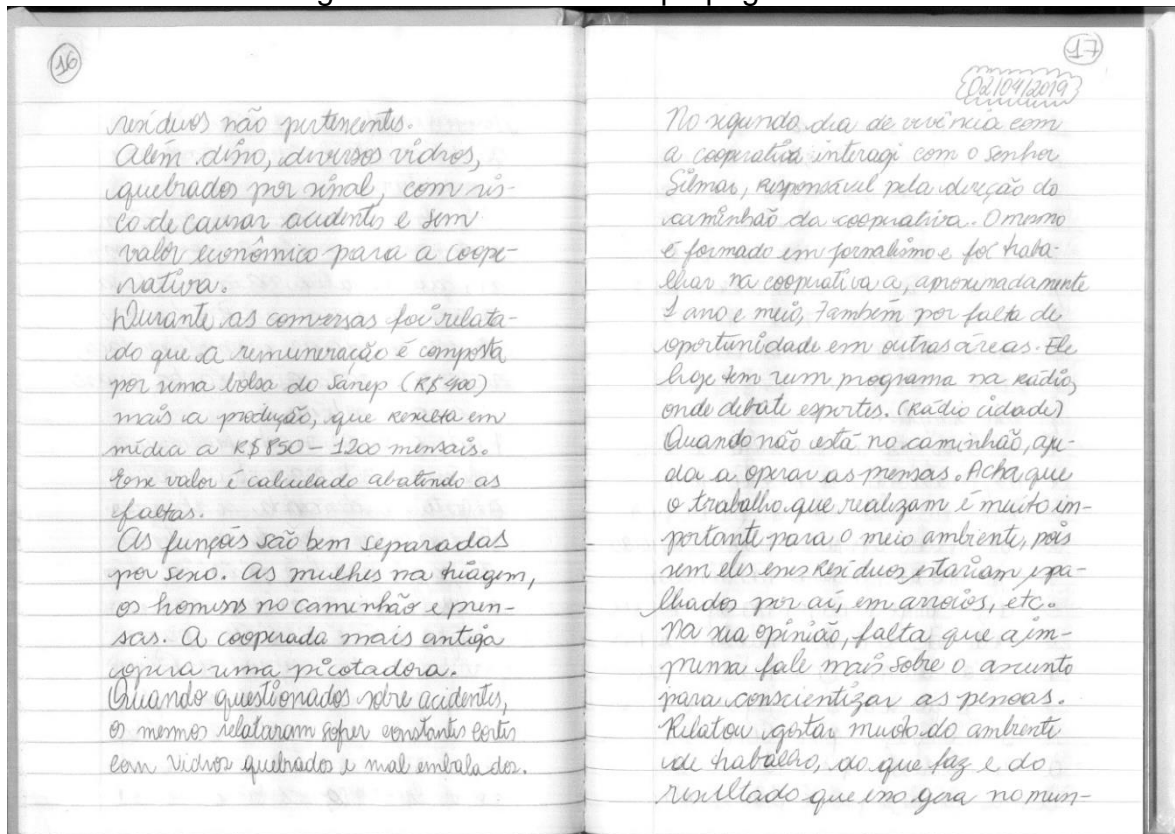 16
resíduos não pertencentes.
Além disso, diversos vidros,
quebrados por sinal, com ris-
co de causar acidentes e sem
valor econômico para a coope-
rativa.
Durante as conversas foi relata-
do que a remuneração é composta
por uma bolsa do Sanep (R$ 400)
mais a produção, que resulta em
média a R$ 850 - 1200 mensais.
Esse valor é calculado abatendo as
faltas.
As funções são bem separadas
por sexo. As mulhes na triagem,
os homens no caminhão e pren-
sas. A cooperada mais antiga
opera uma picotadora.
Quando questionados sobre acidentes,
os mesmos relataram sofrer constantes cortes
com vidros quebrados e mal embalados.
17
02/04/2019
No segundo dia de vivência com
a cooperativa interagi com o senhor
Silmar, responsável pela direção do
caminhão da cooperativa. O mesmo
é formado em jornalismo e foi traba-
lhar na cooperativa a, aproximadamente
1 ano e meio, também por falta de
oportunidade em outras áreas. Ele
hoje tem um programa na rádio,
onde debate esportes. (Rádio cidade)
Quando não está no caminhão, aju-
da a operar as prensas. Acha que
o trabalho que realizam é muito im-
portante para o meio ambiente, pois
sem eles esses resíduos estariam espa-
lhados por aí, em arroios, etc.
Na sua opinião, falta que a im-
prensa fale mais sobre o assunto
para conscientizar as pessoas.
Relatou gostar muito do ambiente
de trabalho, do que faz e do
resultado que isso gera no mun-